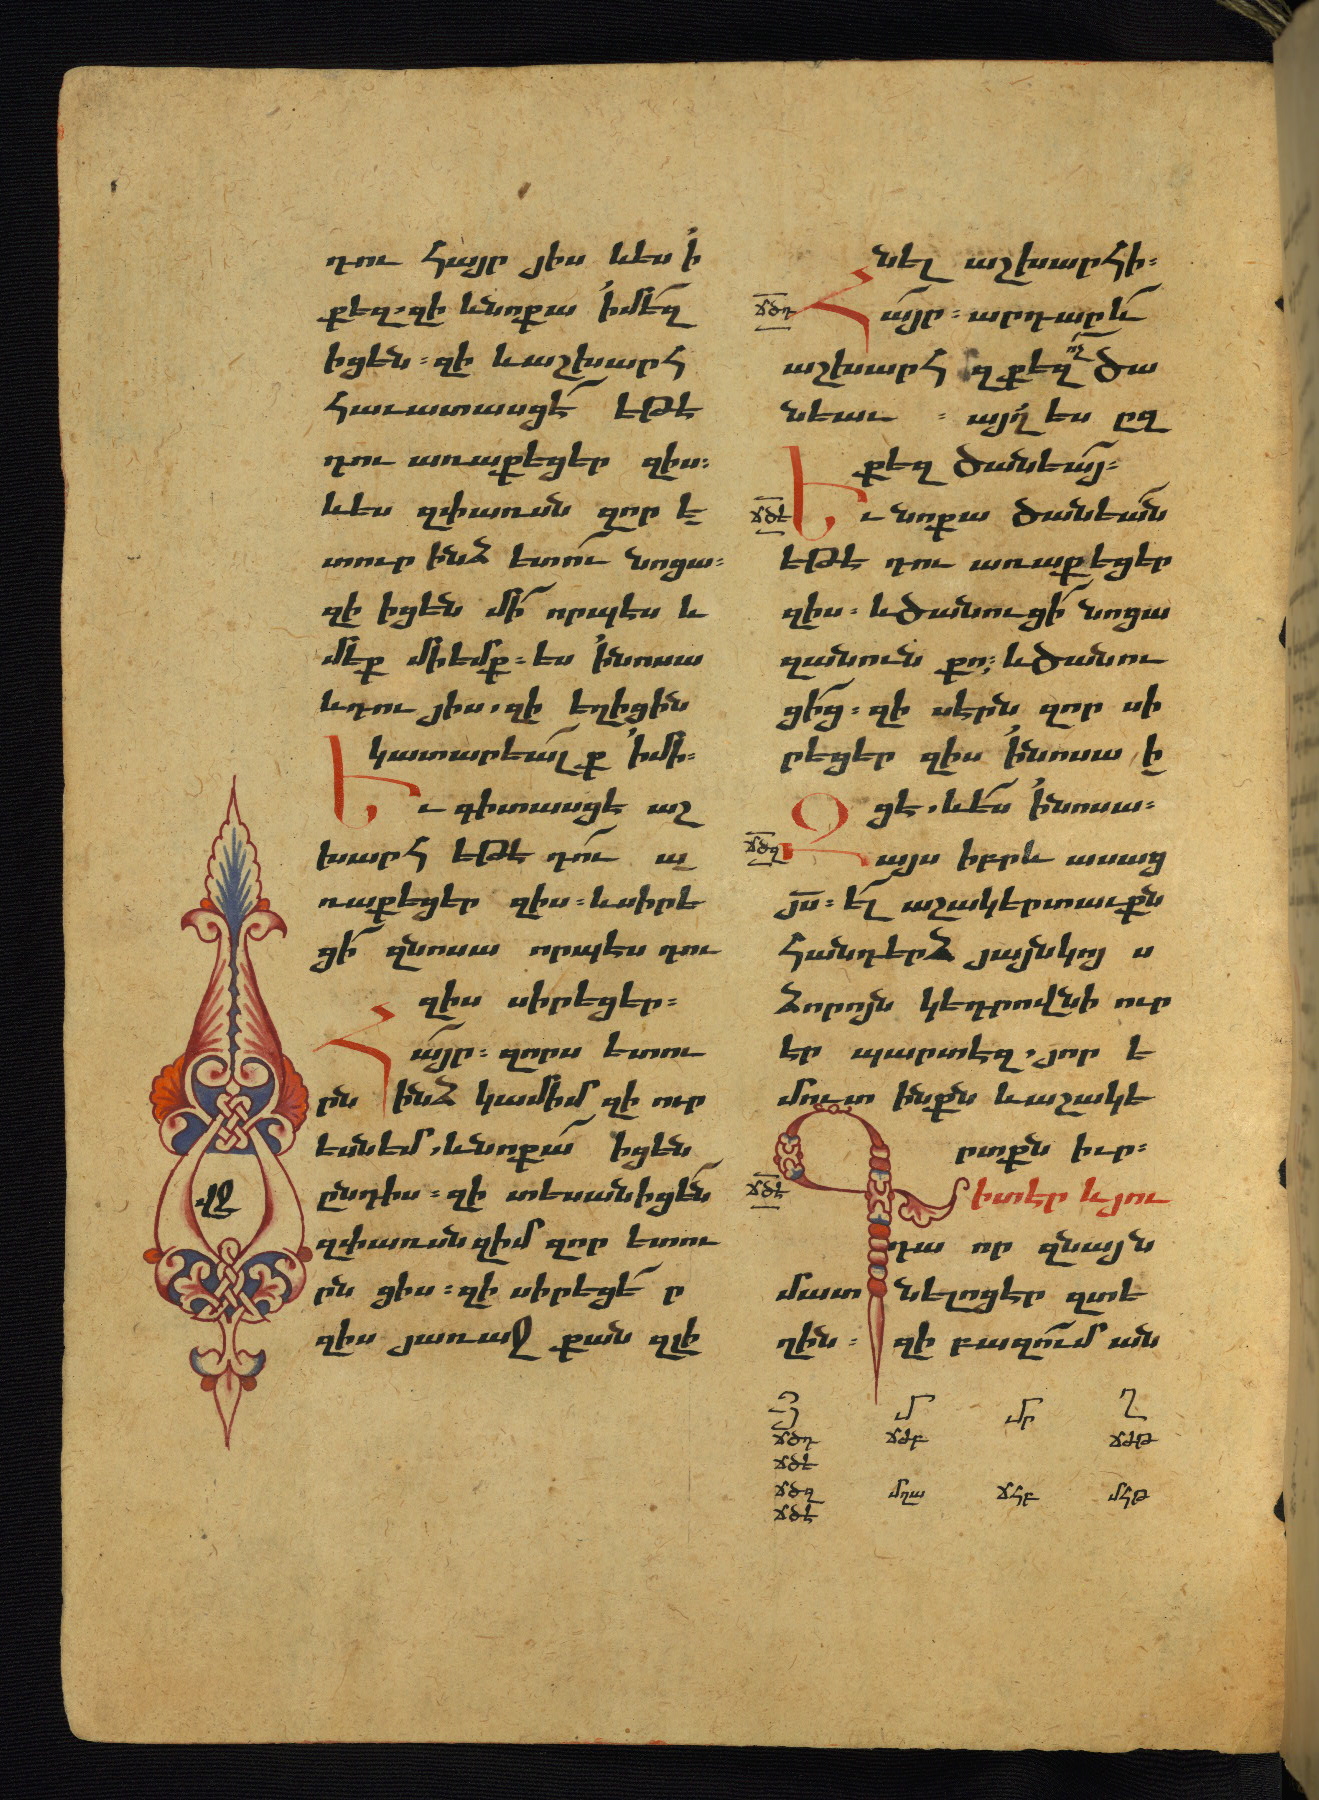 դու հայր յիս և ես ՛ի
քեզ. զի և նոքա ՛ի մեզ
իցեն ։ զի և աշխարհ
հաւատասցէ եթէ
դու առաքեցեր զիս ։
և ես զփառսն զոր ե
տուր ինձ ետու նոցա ։
զի իցեն մի որպէս և
մեք մի եմք ։ ես ՛ի նոսա
և դու յիս, զի եղիցին
կատարեալք ՛ի մի ։
Եւ գիտասցէ աշ
խարհ եթէ դու ա
ռաքեցեր զիս ։ և սիրե
ցի զնոսա որպէս դու
զիս սիրեցեր ։
Հայր ։ զորս ետու
րն ինձ կամիմ զի ուր
ես եմ, և նոքա իցեն
ընդ իս ։ զի տեսանիցեն
զփառսն զիմ զոր ետու
րն ցիս ։ զի սիրեցե ր
զիս յառաջ քան զլի
ՎՋ
նել աշխարհի ։
ՃԾԴ
Հայր ։ արդար և
աշխարհ զքեզ ոչ ծա
նեաւ ։ այլ ես ըզ
քեզ ծանեայ ։
ՃԾԵ
Եւ նոքա ծանեան
եթէ դու առաքեցեր
զիս ։ և ծանուցի նոցա
զանուն քո ։ և ծանու
ցից ։ զի սէրն զոր սի
րեցեր զիս ՛ի նոսա ի
ցէ, և ես ՛ի նոսա ։
ՃԾԶ
Զայս իբրև ասաց
յս ։ ել աշակերտաւքն
հանդերձ յայնկոյ ս
ձորոյն կեդրովնի ուր
էր պարտէզ, յոր ե
մուտ ինքն և աշակե
րտքն իւր ։
ՃԾԷ
Գիտէր և յու
դա որ զնայն
մատնելոցէր զտե
ղին ։ զի բազում ան
Յ Մ Մր Ղ
ՃԾԴ ՃԺԲ ՃԺԹ
ՃԾԵ
ՃԾԶ ՄՂԱ ՃՀԲ ՄՀԹ
ՃԾԷ